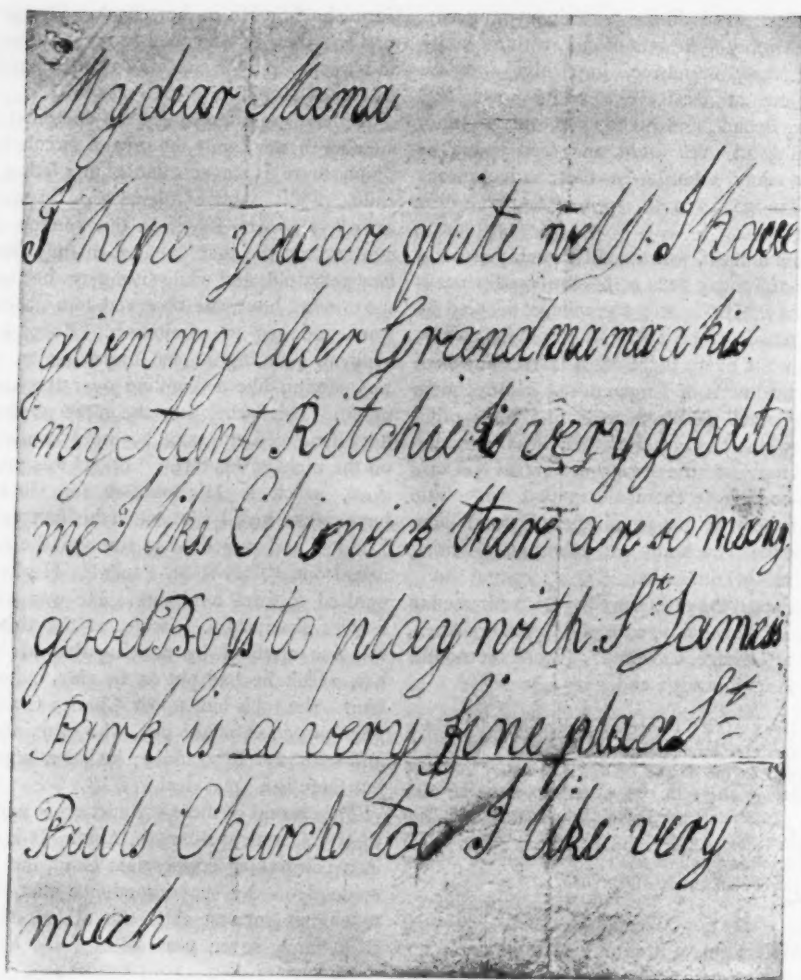 My dear Mama
I hope you are quite well. I have
given my dear Grandmama a kiss.
my Aunt Ritchie is very good to
me I like Chiswick there are so many
good Boys to play with. St. James's
Park is a very fine place St
Pauls Church too I like very
much